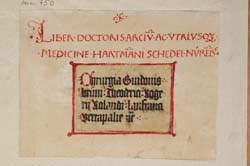 LIBER DOCTORIS ARCIV̅ AC VTRIVSQ3
MEDICINE HARTMA̅NI SCHEDEL NVRE̅B
Chirurgia Guidonis
Theoderici Roge
rij Rolandi Lanfranci